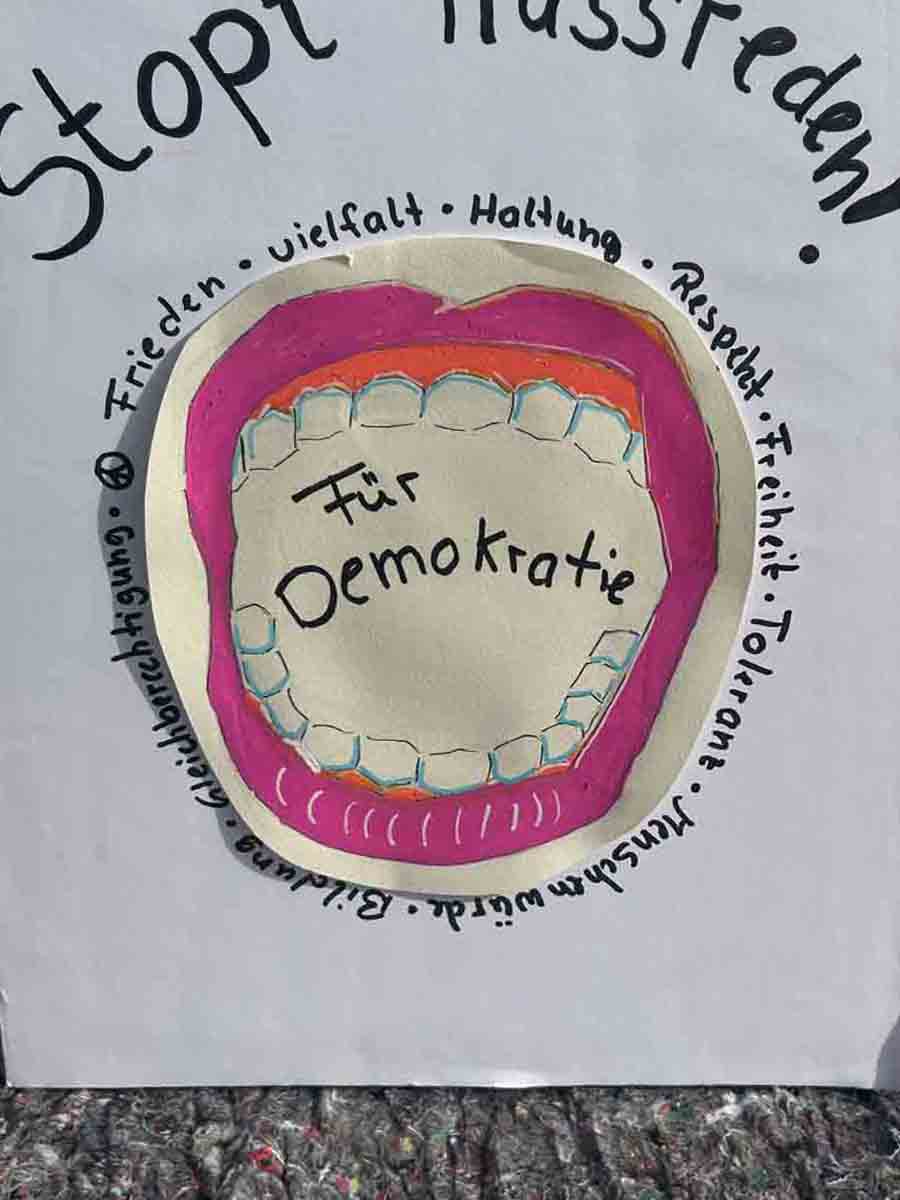 Stopt Hassreden!
Frieden • Vielfalt • Haltung • Respekt • Freiheit • Toleranz • Menschenwürde • Bildung • Gleichberechtigung •
Für
Demokratie